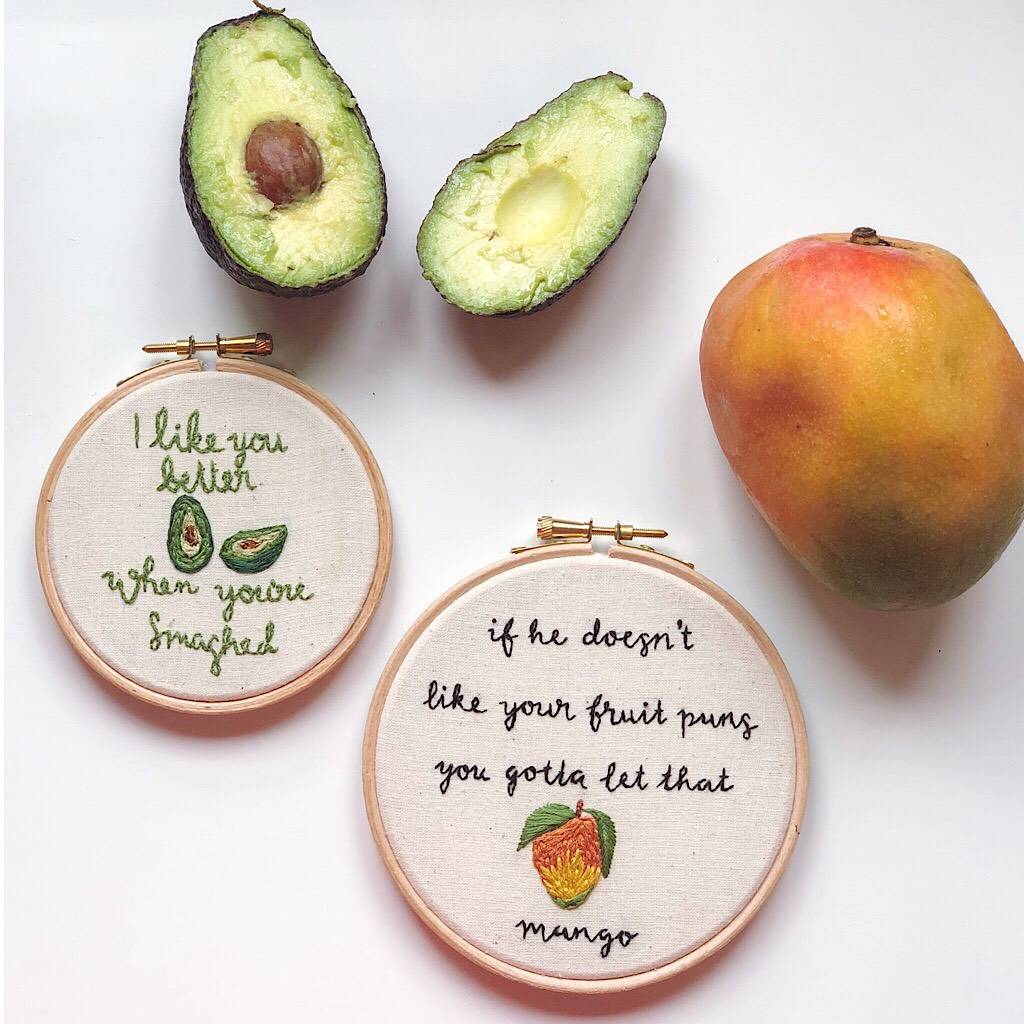 I like you
better
when you're
smashed
if he doesn't
like your fruit puns
you gotta let that
mango